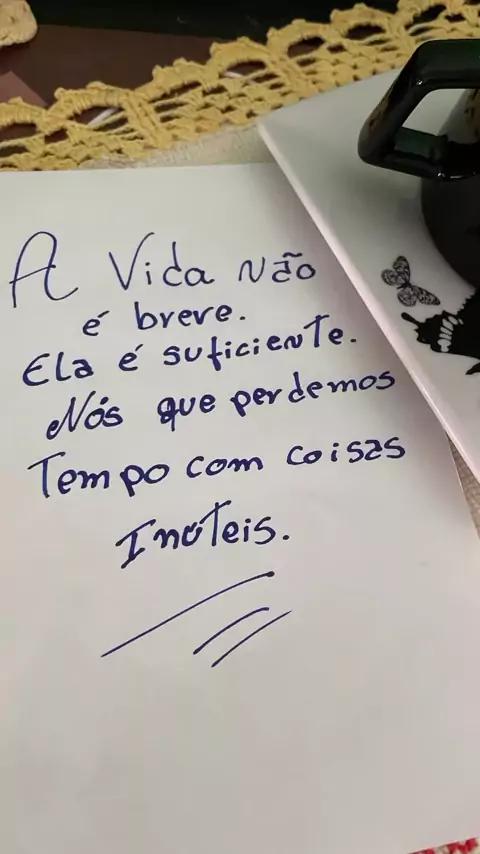 A Vida não
é breve.
Ela é suficiente.
Nós que perdemos
Tempo com coisas
Inúteis.